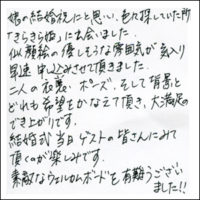 娘の結婚祝にと思い、色々探していた所
「きらきら姫」に出会いました。
似顔絵の優しそうな雰囲気が気入り
早速申し込みさせて頂きました。
二人の衣裳、ポーズ、そして背景と
どれも希望をかなえて頂き、大満足の
でき上がりです。
結婚式当日ゲストの皆さんにみて
頂くのが楽しみです。
素敵なウェルカムボードを有難うござい
ました!!